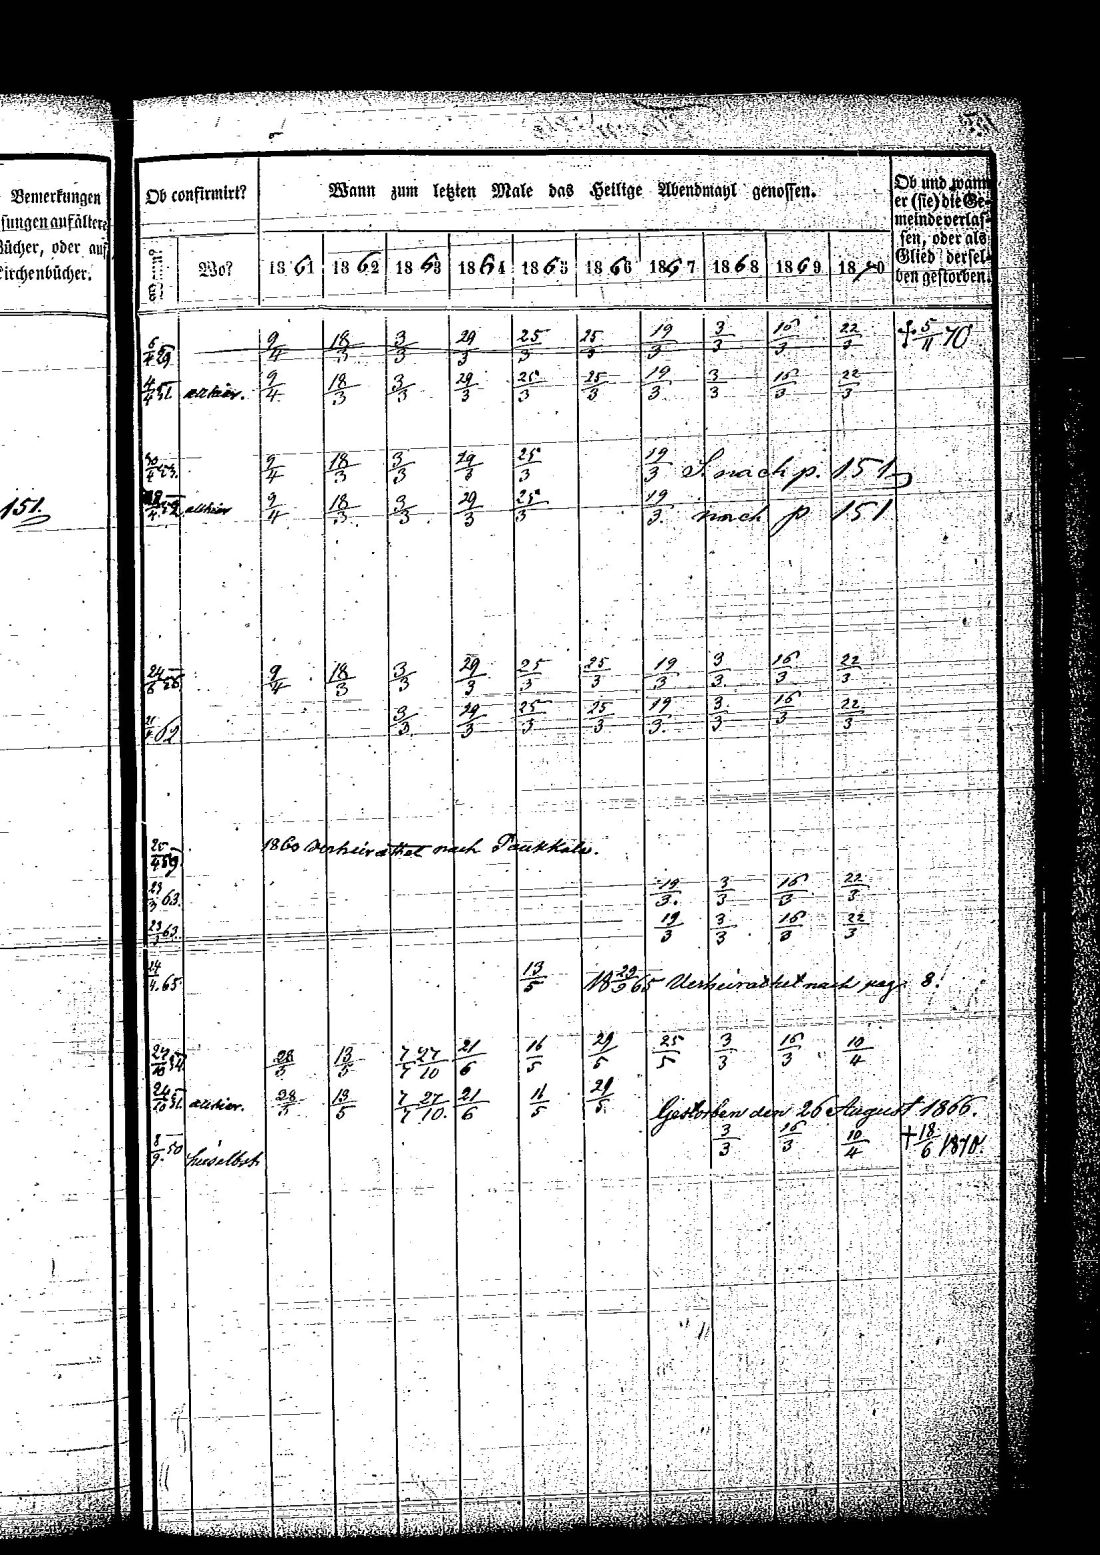 Bemerkungen
sungen auf ältere
Bücher, oder auf
Kirchenbücher.
151.
Ob confirmirt?
Wann zum letzten Male das Heilige Abendmahl genossen.
Ob und wann
er (sie) die Ge-
meinde verlas-
sen, oder als
Glied dersel-
ben gestorben.
Wo?
1861 1862 1863 1864 1865 1866 1867 1868 1869 1870
9/4 18/3 3/3 29/3 25/3 25/3 19/3 3/3 16/3 22/3 † 5/11 70
4/4 51. allhier. 9/4 18/3 3/3 29/3 25/3 25/3 19/3 3/3 16/3 22/3
30/4 53. 9/4 18/3 3/3 29/3 25/3 19/3 S. nach p. 151
allhier 9/4 18/3 3/3 29/3 25/3 19/3. nach p 151
9/4 18/3 3/3 29/3 25/3 25/3 19/3 3/3 16/3 22/3
3/3 29/3 25/3 25/3 19/3 3/3 16/3 22/3
25/4 59. 1860 verheirathet nach
23/3 63. 19/3. 3/3 16/3 22/3
23/3 63. 19/3 3/3 16/3 22/3
24/4. 65. 13/5 18 29/9 65 Verheirathet nach pag. 8.
28/5 13/5 7/7 27/10 21/6 16/5 29/5 25/5 3/3 16/3 10/4
allhier. 28/5 13/5 7/7 27/10 21/6 11/5 29/5 Gestorben den 26 August 1866.
8/9. 50 hieselbst 3/3 16/3 10/4 † 18/6 1870.